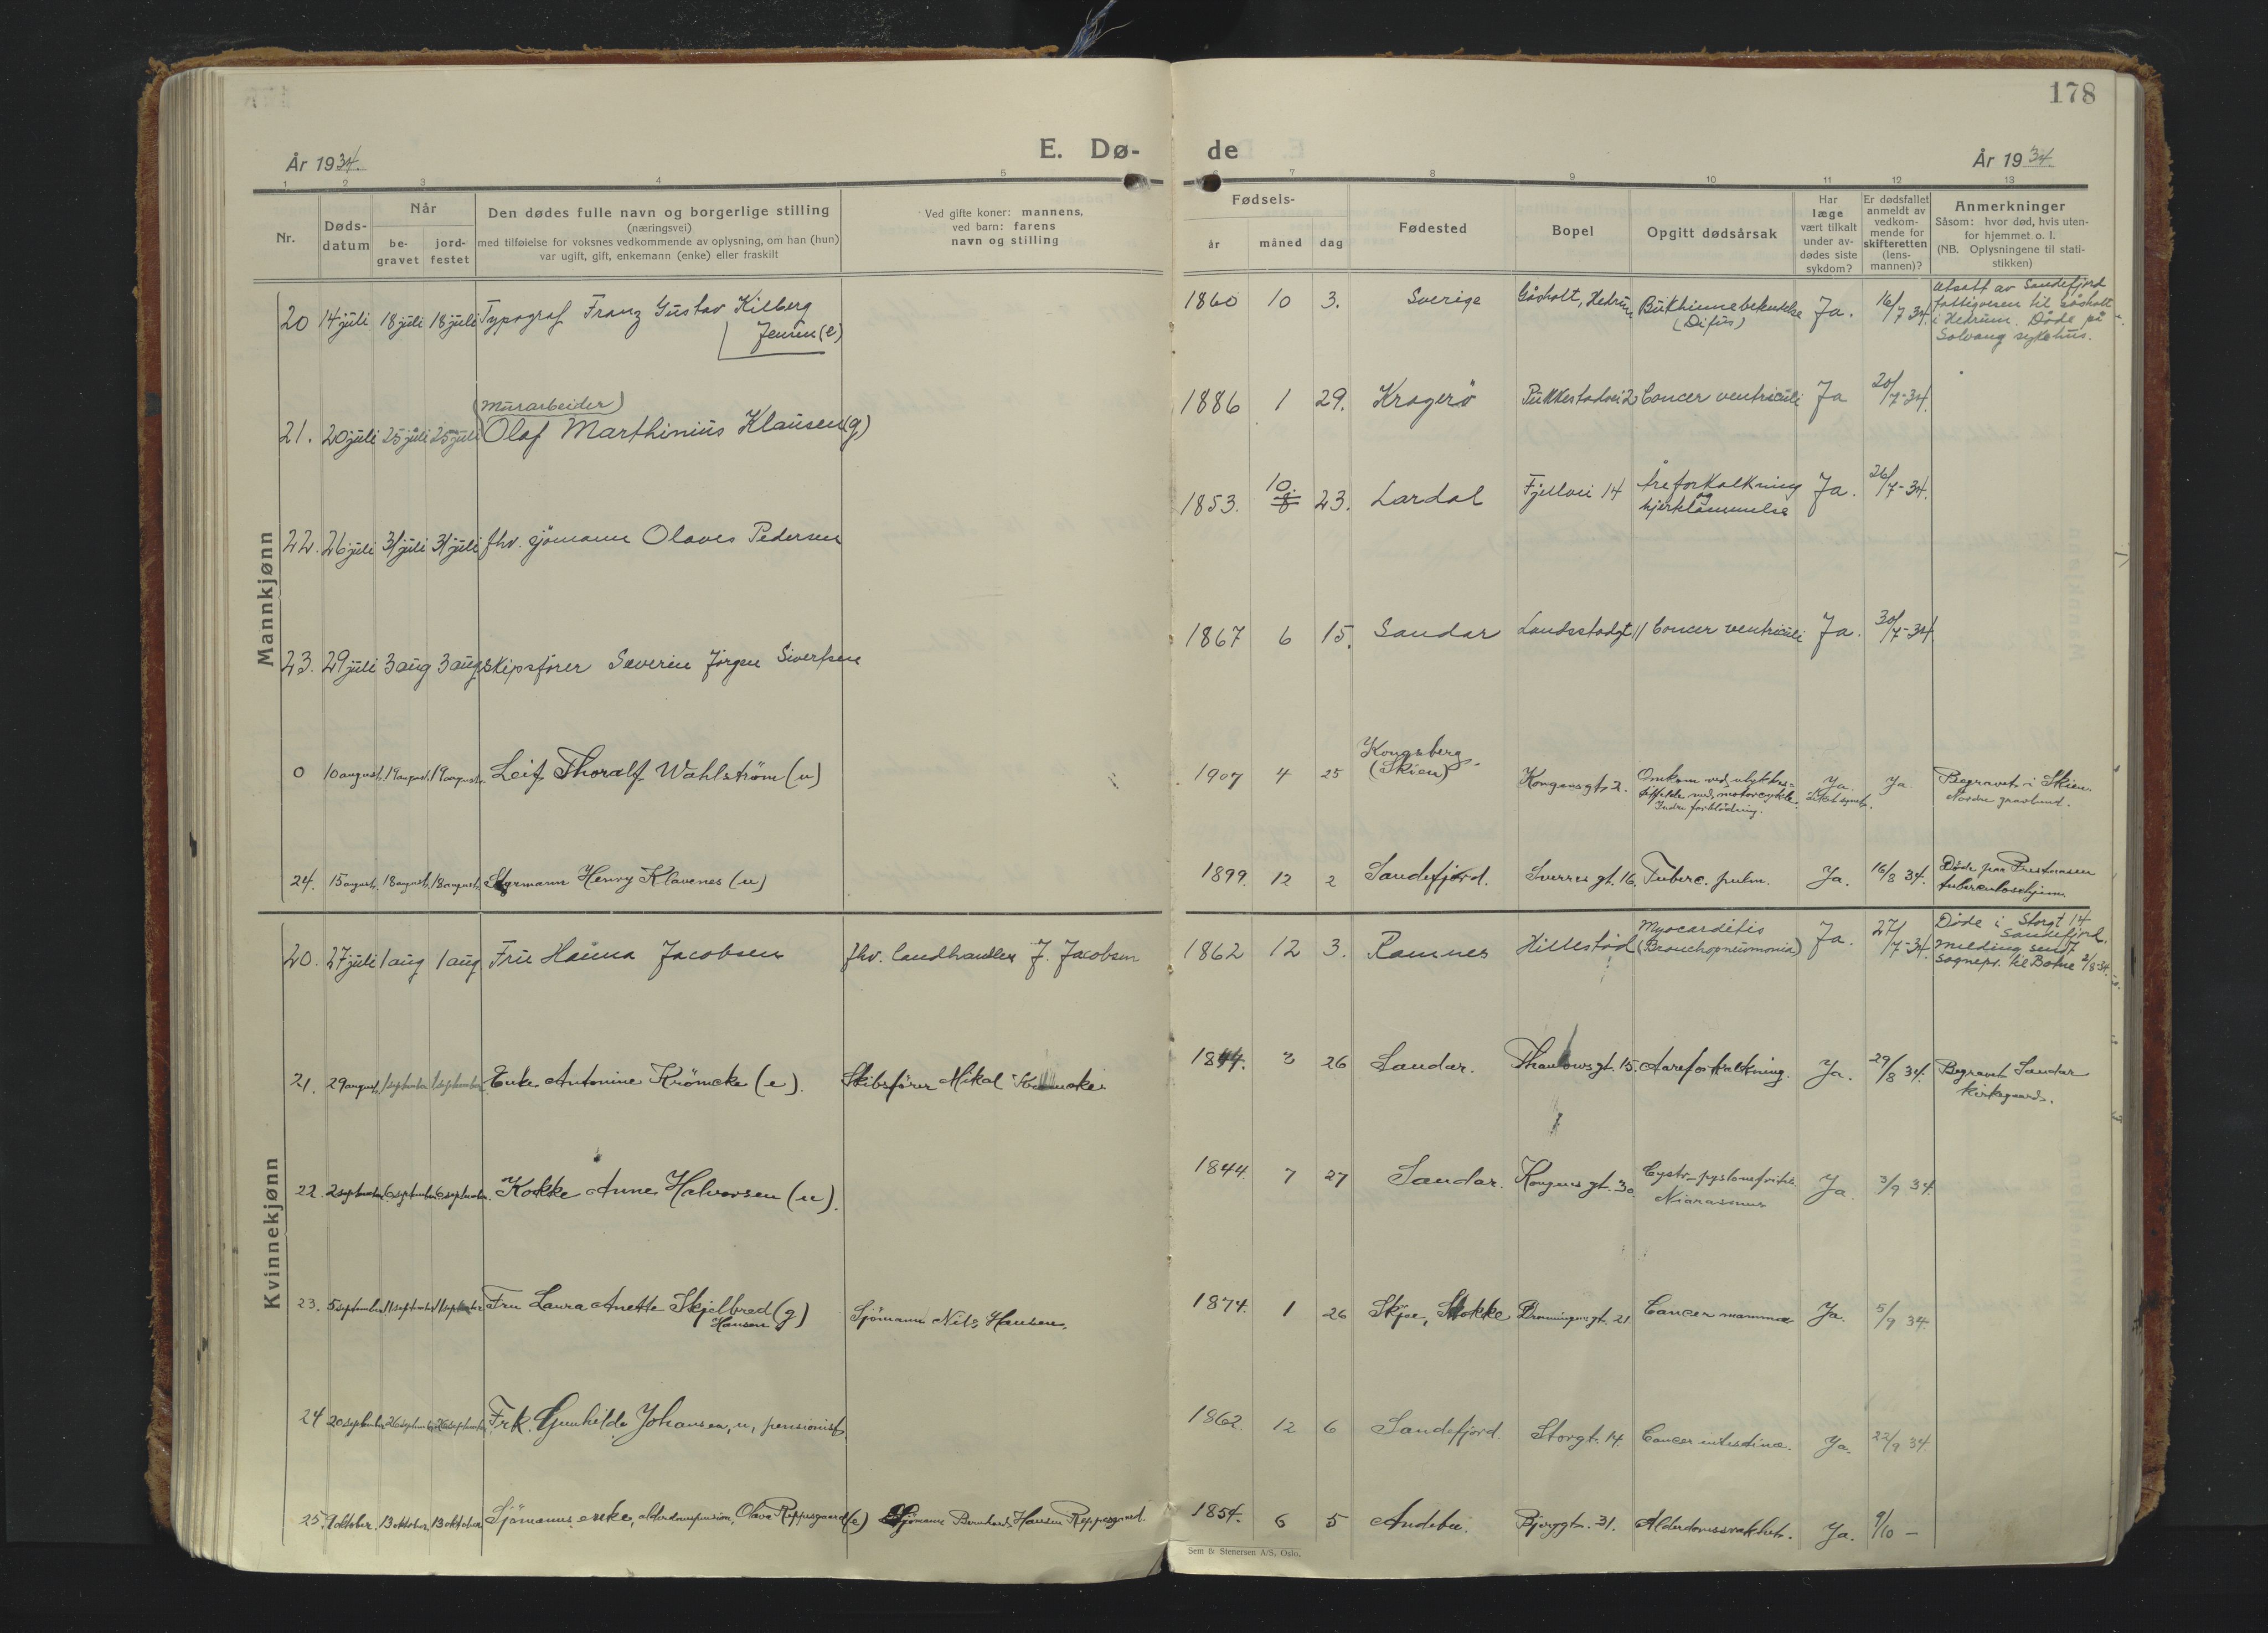 178
E. Dø- de
År 1934.
År 1934
1 2 3 4 5 6 7 8 9 10 11 12 13
Nr.
Døds-
datum
Når
be-
gravet
jord-
festet
Den dødes fulle navn og borgerlige stilling
(næringsvei)
med tilføielse for voksnes vedkommende av oplysning, om han (hun)
var ugift, gift, enkemann (enke) eller fraskilt
Ved gifte koner: mannens,
ved barn: farens
navn og stilling
Fødsels-
år måned dag
Fødested
Bopel
Opgitt dødsårsak
Har
læge
vært tilkalt
under av-
dødes siste
sykdom?
Er dødsfallet
anmeldt av
vedkom-
mende for
skifteretten
(lens-
mannen)?
Anmerkninger
Såsom: hvor død, hvis uten-
for hjemmet o. l.
(NB. Oplysningene til stati-
stikken)
Mannkjønn
20 14 juli 18 juli 18 juli Typograf Franz Gustav Kilberg
Jensen (e)
1860 10 3. Sverige Gåsholt, Hedrum Bukhinnebetendelse
(Difus)
Ja. 16/7 34.
Utsatt av Sandefjord
fattigvesen til Gåsholt
i Hedrum. Døde på
Solvang sykehus.
21. 20 juli 25 juli 25 juli (Murarbeider)
Olaf Marthinius Klausen (g)
1886 1 29. Kragerö Pukkestadvei 2 Cancer ventriculi Ja 20/7-34.
22. 26 juli 31 juli 31 juli fhv. sjömann Olaves Pedersen
1853. 10. 8 23. Lardal Fjellvei 14 Åreforkalkning
og
hjertelammelse
Ja. 26/7-34.
23. 29 juli 3 aug 3 aug Skipsfører Severin Jørgen Sivertsen
1867 6 15. Sandar Landsstadgt 11 Cancer ventriculi Ja. 30/7-34
0 10 august. 19 august. 19 august. Leif Thoralf Wahlström (u)
1907 4 25 Kongsberg.
(Skien)
Kongensgt. 2. Omkom ved ulykkes-
tilfelde med motorcykkel.
Indre forblödning.
Ja.
Ja.
Begravet i Skien.
Nordre gravlund.
24. 15 august. 18 august. 18 august. Styrmann Henry Klavenes (u)
1899. 12 2 Sandefjord. Sverres gt. 16. Tuberc. pulm. Ja. 16/8 34.
Döde paa Prestaasen
tuberkulosehjem.
Kvinnekjønn
20. 27 juli 1 aug 1 aug Fru Hanna Jacobsen fhv. landhandler J. Jacobsen
1862 12 3. Ramnes Hillestad Myocarditis
(Bronchopneumonia)
Ja. 27/7-34.
Døde i Storgt 14
Sandefjord.
Melding sendt
sognepr. til Botne 2/8-34.
21. 29 august. 1 september 1 september. Enke Antonine Krömcke (e). Skibsfører Mikal Krömcke
1844. 3 26 Sandar. Thaulowsgt. 15. Aareforkalkning. Ja. 29/8 34.
Begravet Sandar
kirkegaard.
22. 2 september 6 september 6 september. Kokke Anne Halvorsen (u).
1844. 7 27 Sandar. Kongens gt. 30
Ja. 3/9 34.
23. 5 september 11 september 11 september Fru Laura Anette Skjelbred (g)
Hansen
Sjömann Nils Hansen.
1874. 1 26 Skjee, Stokke Dronningensgt. 21. Cancer mammae Ja. 5/9 34.
24 20 september 26 september 26 september Frk. Gunhilda Johansen, u, pensionist
1862. 12 6 Sandefjord. Storgt. 14. Cancer intestinae. Ja. 22/9 34
25. 9 oktober. 13 oktober. 13 oktober Sjömanns enke, alderdomspension, Olava Reppesgaard (e) Sjömann Bernhard Hansen Reppesgaard.
1854. 6 5 Andebu. Bjerggt. 31. Alderdomssvakhet. Ja. 9/10 -
Sem & Stenersen A/S, Oslo.